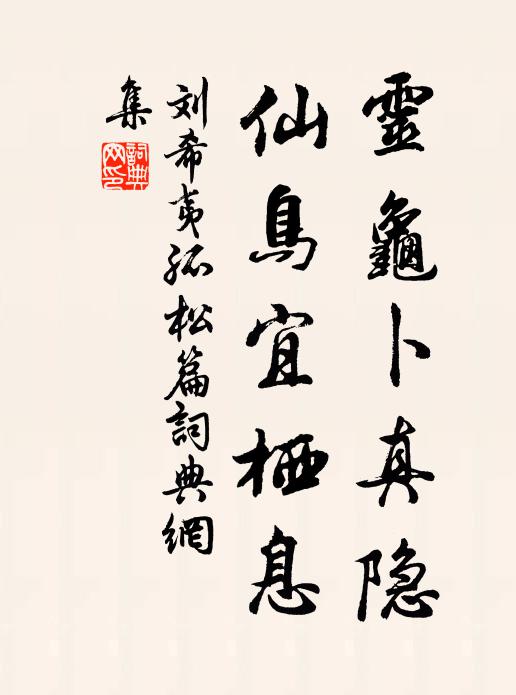 靈龜卜真隐
仙鳥宜栖息
刘希夷孤松篇詞典網
集
詞典網印